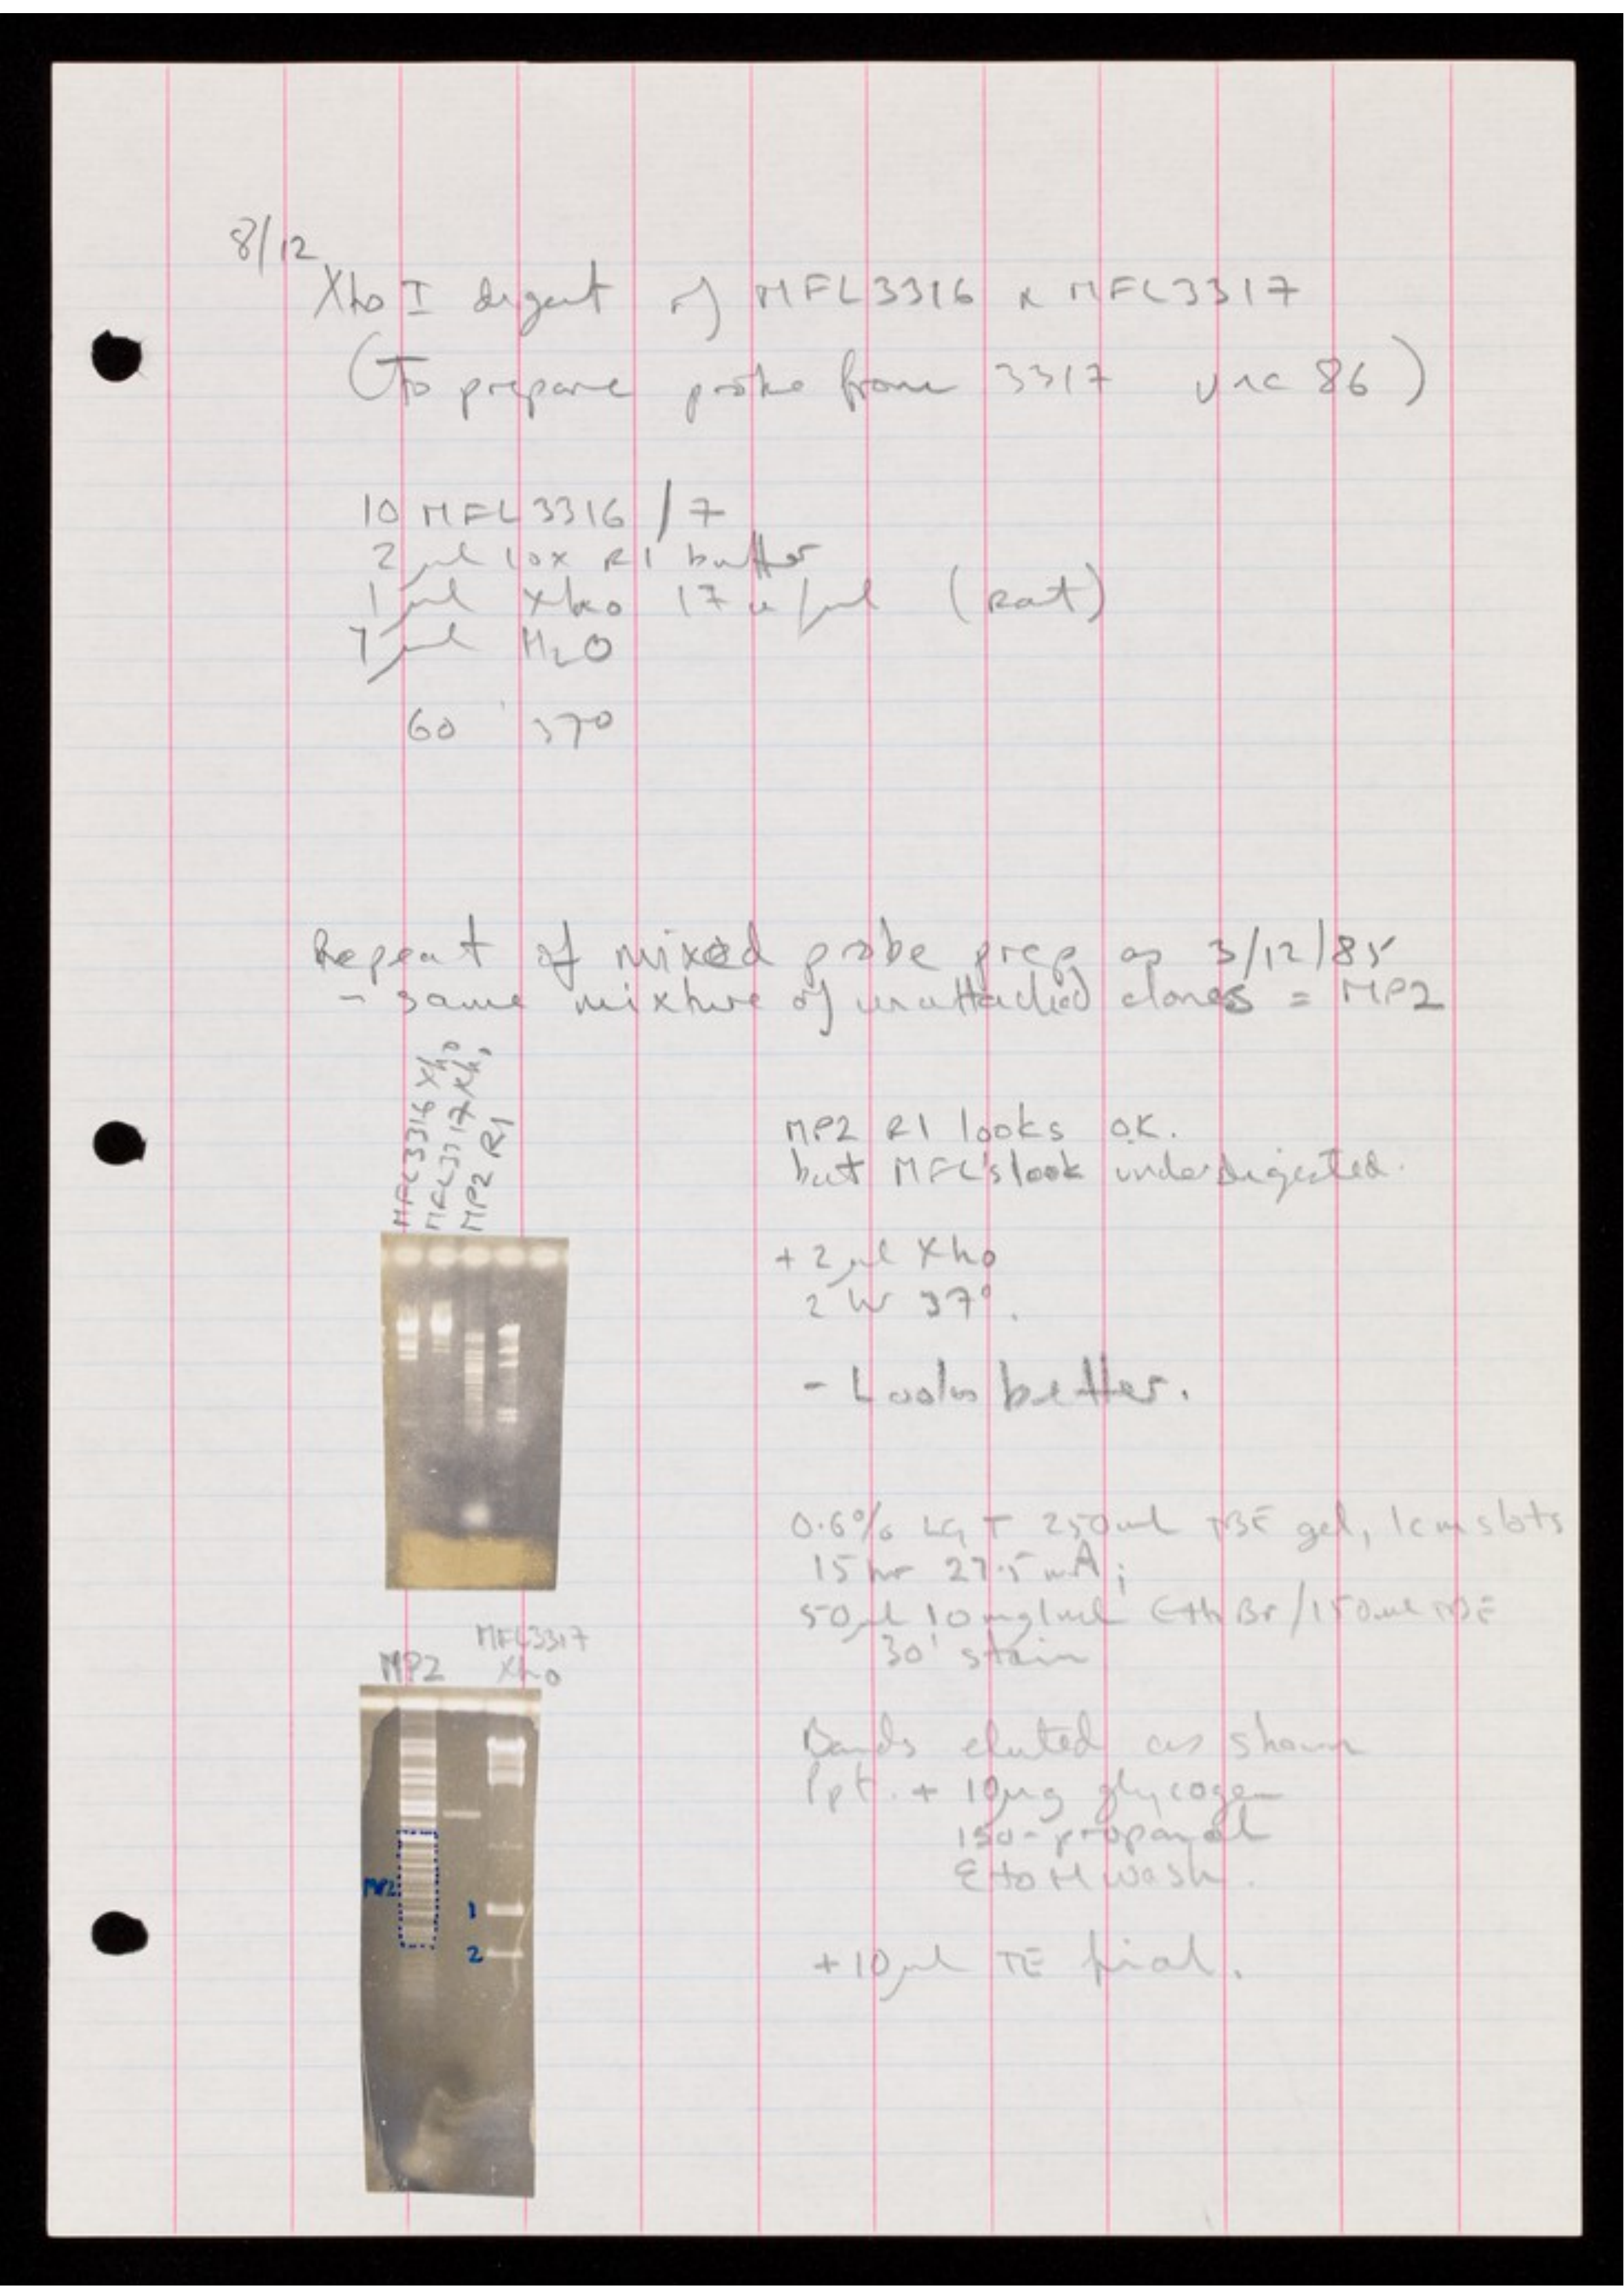 8/12
Xho I digest of MFL3316 & MFL3317
(To prepare probe from 3317 unc 86)
10 MFL3316/7
2 μl 10x R1 buffer
1 μl Xho 17 u/μl (Rat)
7 μl H2O
60' 37°
Repeat of mixed probe prep as 3/12/85
- same mixture of unattached clones = MP2
MFL3316 Xho
MFL3317 Xho
MP2 R1
MP2 R1 looks OK.
but MFL's look underdigested.
+ 2 μl Xho
2 hr 37°.
- Looks better.
0.6% LGT 250ml TBE gel, 1cm slots
15 hr 27.5 mA;
50μl 10mg/ml EthBr/150ml TBE
30' stain
MP2
MFL3317
Xho
Bands eluted as shown
Ppt. + 10μg glycogen
iso-propanol
EtOH wash.
MP2
1
2
+10μl TE final.